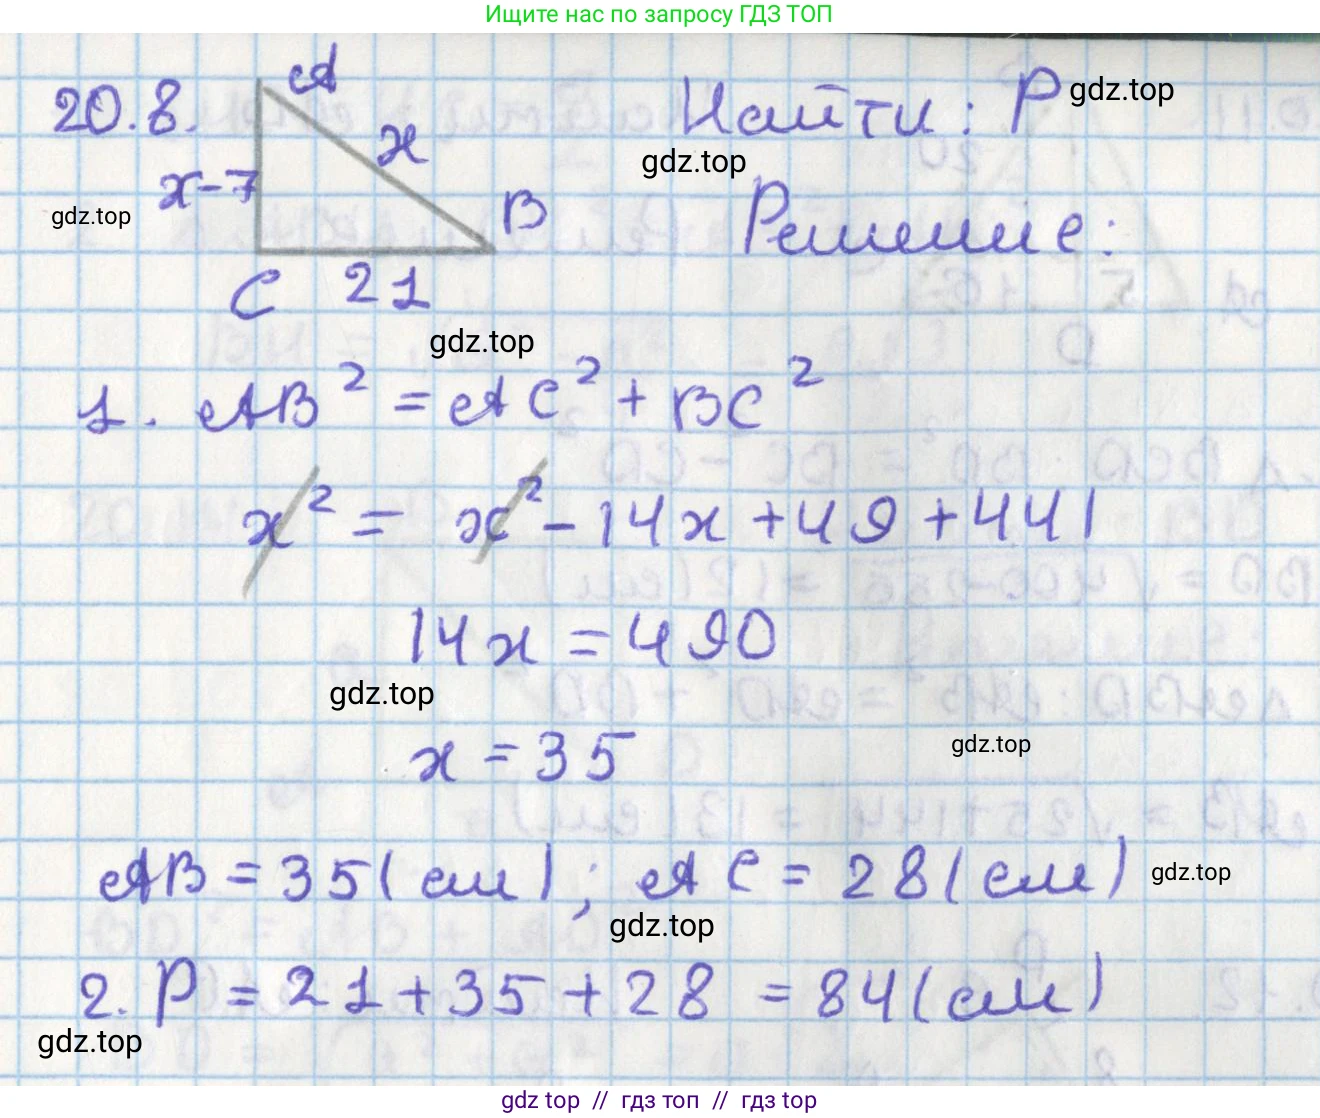 Ищите нас по запросу ГДЗ ТОП
20.8.
A
x
x-7
B
C 21
Найти: P
gdz.top
gdz.top
gdz.top
Решение:
gdz.top
1. AB² = AC² + BC²
x² = x² - 14x + 49 + 441
14x = 490
gdz.top
x = 35
gdz.top
AB = 35 (см); AC = 28 (см)
gdz.top
gdz.top
2. P = 21 + 35 + 28 = 84 (см)
gdz.top
gdz top // гдз топ // гдз top